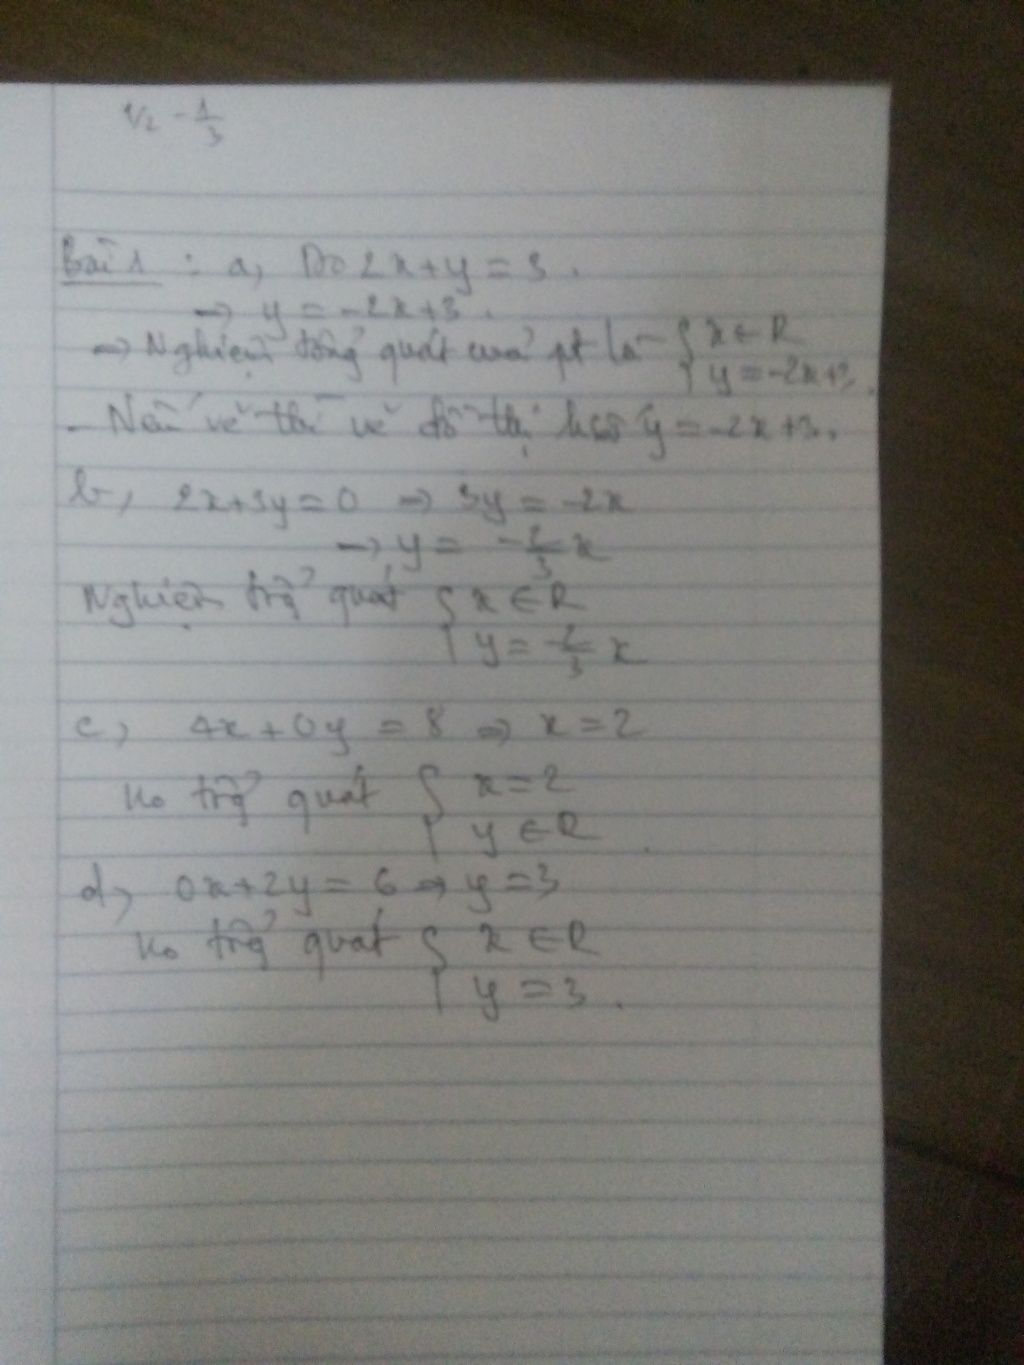 1/2 - 1/3
Bài 1 : a, Do 2x+y = 3 .
→ y = -2x+3 .
⇒ Nghiệm tổng quát của pt là { x ∈ R
{ y = -2x+3 .
- Nếu vẽ thì vẽ đồ thị hso y = -2x+3.
b, 2x+3y = 0 ⇒ 3y = -2x
→ y = -2/3 x
Nghiệm tổ quát { x ∈ R
{ y = -2/3 x
c, 4x + 0y = 8 ⇒ x = 2
No tổ quát { x = 2
{ y ∈ R .
d, 0x+2y = 6 ⇒ y = 3
No tổ quát { x ∈ R
{ y = 3 .